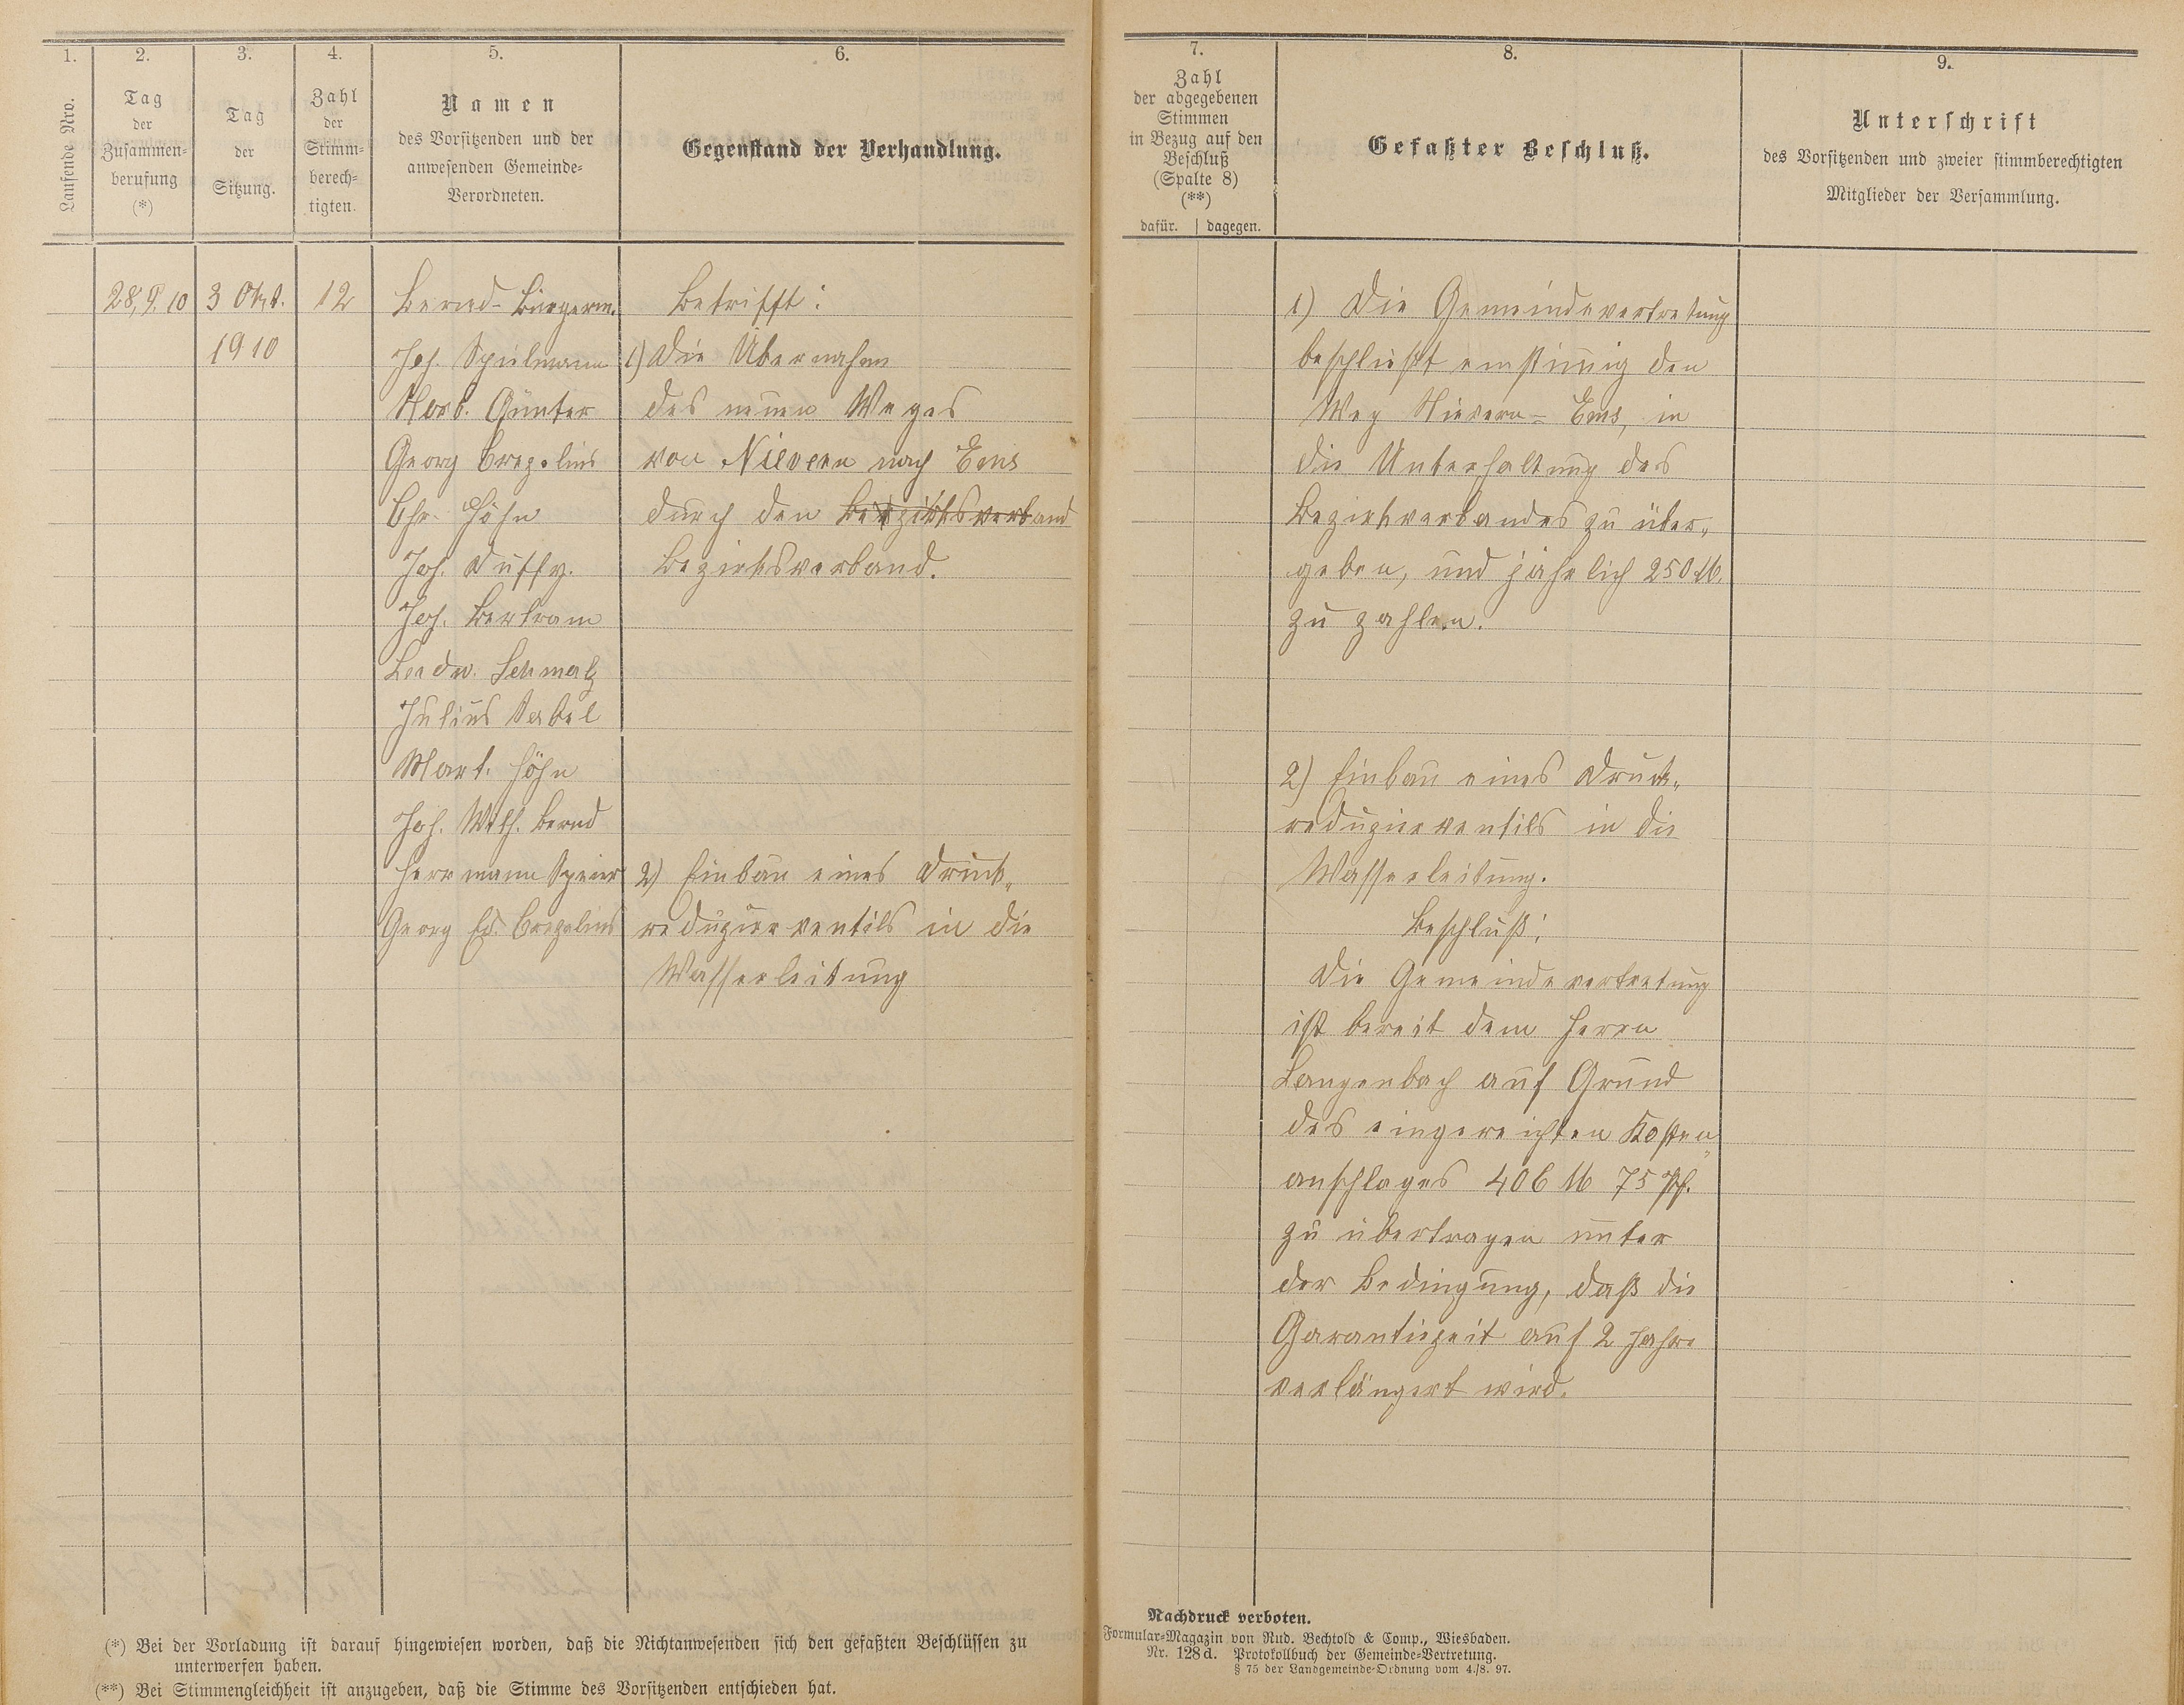 1.
Laufende Nro.
2.
Tag
der
Zusammen-
berufung
(*)
3.
Tag
der
Sitzung.
4.
Zahl
der
Stimm-
berech-
tigten.
5.
Namen
des Vorsitzenden und der
anwesenden Gemeinde-
Verordneten.
6.
Gegenstand der Verhandlung.
28,9,10
3 Okt.
1910
12
Bernd - Bürgerm.
Joh. Spielmann
Norb. Günter
Georg Crezelius
Chr. Höhn
Joh. Duffy.
Joh. Bertram
Ludw. Schmalz
Julius Sabel
Mart. Höhn
Joh. Wilh. Bernd
Herrmann Speier
Georg Ed. Crezelius
Betrifft:
1) Die Übernahm
des neuen Weges
von Nievern nach Ems
durch den Bezirksverband
Bezirksverband.
2) Einbau eines Druck„
reduzierventils in die
Wasserleitung
(*) Bei der Vorladung ist darauf hingewiesen worden, daß die Nichtanwesenden sich den gefaßten Beschlüssen zu
unterwerfen haben.
(**) Bei Stimmengleichheit ist anzugeben, daß die Stimme des Vorsitzenden entschieden hat.
7.
Zahl
der abgegebenen
Stimmen
in Bezug auf den
Beschluß
(Spalte 8)
(**)
dafür. | dagegen.
8.
Gefaßter Beschluß.
9.
Unterschrift
des Vorsitzenden und zweier stimmberechtigten
Mitglieder der Versammlung.
1) Die Gemeindevertretung
beschließt einstimig den
Weg Nievern - Ems, in
die Unterhaltung des
Bezirksverbandes zu über„
geben, und jährlich 250 M.
zu zahlen.
2) Einbau eines Druck„
reduzierventils in die
Wasserleitung.
Beschluß:
Die Gemeindevertretung
ist bereit dem Herrn
Langenbach auf Grund
des eingereichten Kosten„
anschlages 406 M 75 Pf.
zu übertragen unter
der Bedingung, daß die
Garantiezeit auf 2 Jahre
verlängert wird.
Nachdruck verboten.
Formular-Magazin von Rud. Bechtold & Comp., Wiesbaden.
Nr. 128d. Protokollbuch der Gemeinde-Vertretung.
§ 75 der Landgemeinde-Ordnung vom 4./8. 97.